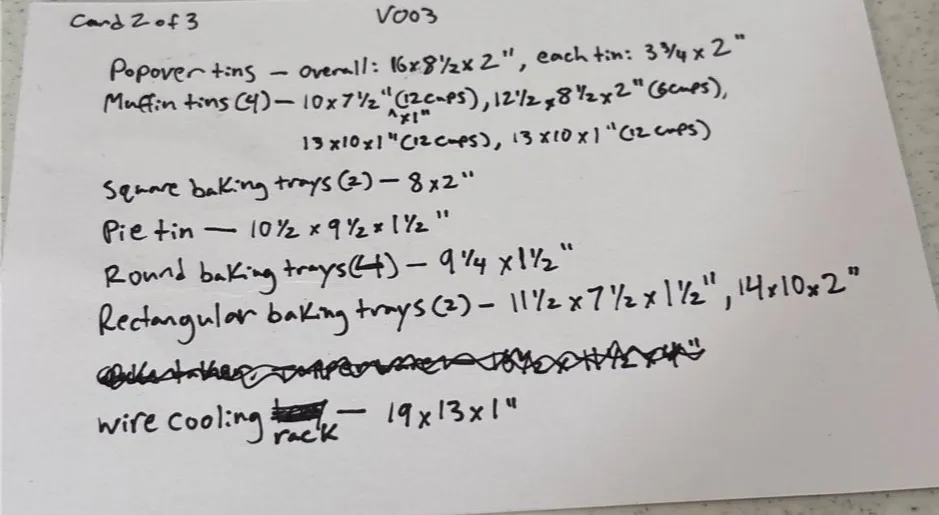 Card 2 of 3 V003
Popover tins — overall: 16 x 8 1/2 x 2", each tin: 3 3/4 x 2"
Muffin tins (4) — 10 x 7 1/2" ^x1" (12 cups), 12 1/2 x 8 1/2 x 2" (6 cups),
13 x 10 x 1" (12 cups), 13 x 10 x 1" (12 cups)
Square baking trays (2) — 8 x 2"
Pie tin — 10 1/2 x 9 1/2 x 1 1/2"
Round baking trays (4) — 9 1/4 x 1 1/2"
Rectangular baking trays (2) — 11 1/2 x 7 1/2 x 1 1/2", 14 x 10 x 2"
wire cooling rack — 19 x 13 x 1"